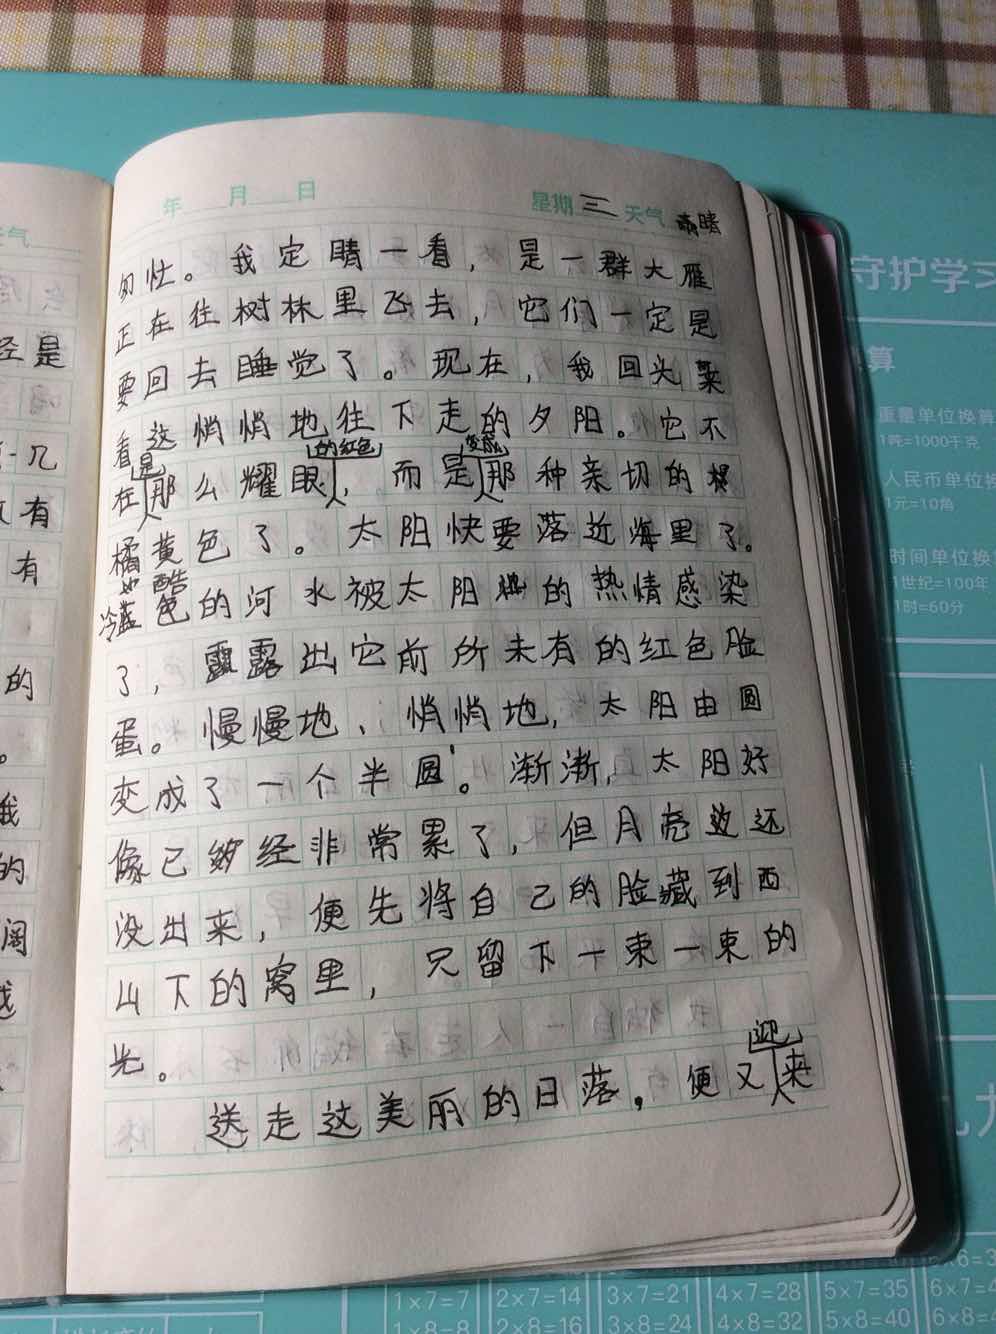 年 月 日 星期三 天气 晴
灶。我定睛一看，是一群大雁
正在往树林里飞去，它们一定是
要回去睡觉了。现在，我回头
看这悄悄地往下走的夕阳。它不
是 的红色 变成
在那么耀眼，而是那种亲切的
橘黄色了。太阳快要落近海里了。
冷酷色的河水被太阳的热情感染
了，露出它前所未有的红色脸
蛋。慢慢地、悄悄地，太阳由圆
变成了一个半圆。渐渐，太阳好
像已经非常累了，但月亮还
没出来，便先将自己的脸藏到西
山下的窝里，只留下一束一束的
光。
迎
送走这美丽的日落，便又来
气
经是
几
有
有
的
。
我
的
阔
越
守护学习
算
重量单位换
1吨=1000千克
人民币单位换
1元=10角
时间单位换
1世纪=100年
1时=60分
九
1×7=7 2×7=14 3×7=21 4×7=28 5×7=35 6×7=4
1×8=8 2×8=16 3×8=24 4×8=32 5×8=40 6×8=4